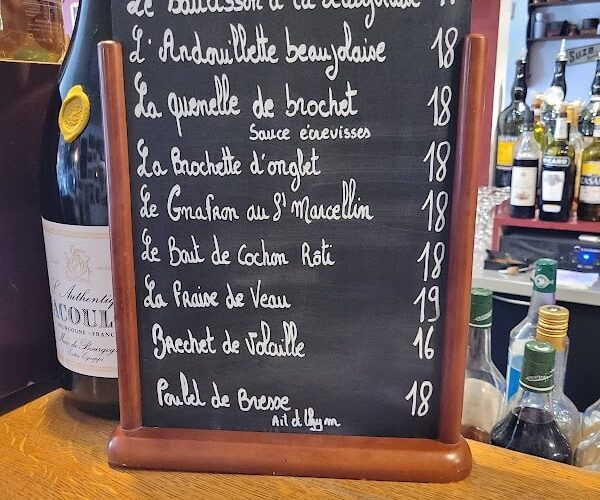 L'Andouillette beaujolaise 18
La quenelle de brochet 18
Sauce écrevisses
La Brochette d'onglet 18
Le Gnafron au St Marcellin 18
Le Bout de Cochon Rôti 18
La Fraise de Veau 19
Brechet de Volaille 16
Poulet de Bresse 18
Ail et thym
L'Authentique
JACOULOT
BOURGOGNE - FRANCE
Marc de Bourgogne
Suze